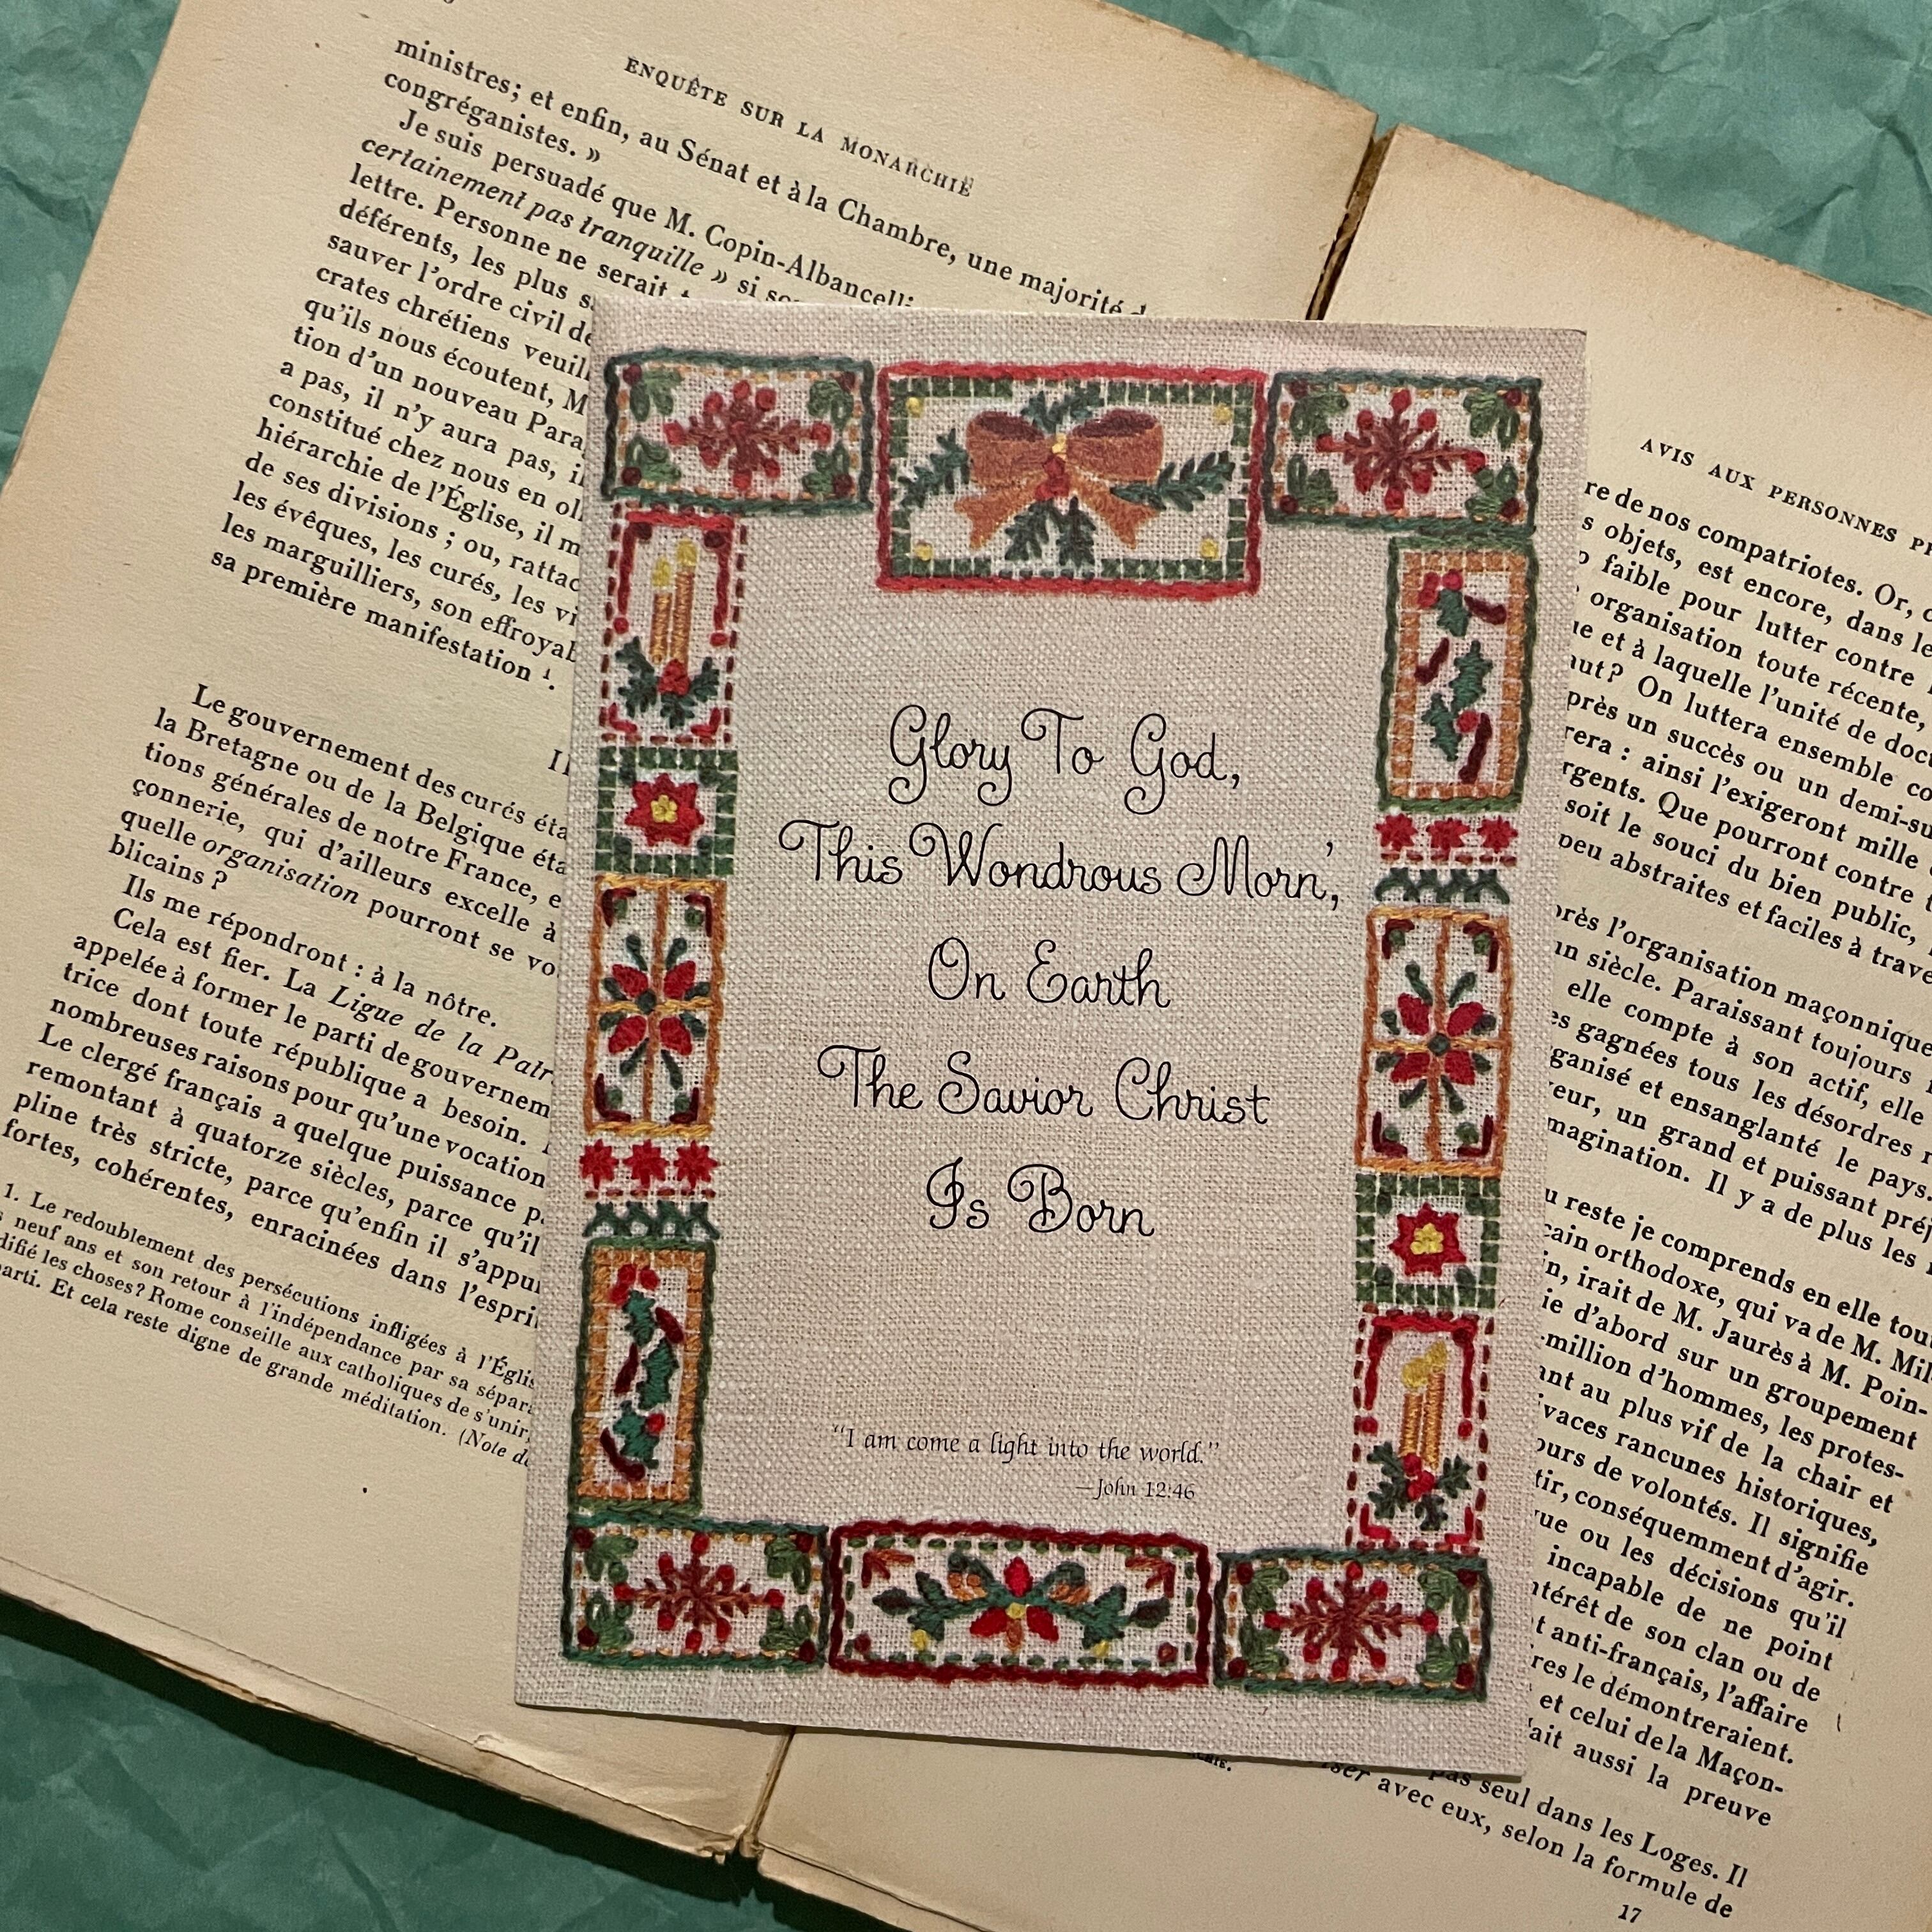 ENQUÊTE SUR LA MONARCHIE
ministres; et enfin, au Sénat et à la Chambre, une majorité
congréganistes. »
Je suis persuadé que M. Copin-Albancelli
certainement pas tranquille » si
lettre. Personne ne serait
déférents, les plus
sauver l'ordre civil
crates chrétiens
qu'ils nous écoutent, M
tion d'un nouveau
a pas, il n'y aura pas,
constitué chez nous en
hiérarchie de l'Église, il
de ses divisions ; ou,
les évêques, les curés, les
les marguilliers, son
sa première manifestation 1.
Le gouvernement des curés
la Bretagne ou de la Belgique
tions générales de notre France,
çonnerie, qui d'ailleurs excelle à
quelle organisation pourront se
blicains ?
Ils me répondront : à la nôtre.
Cela est fier. La Ligue de la
appelée à former le parti de
trice dont toute république a besoin.
nombreuses raisons pour qu'une vocation
Le clergé français a quelque puissance
remontant à quatorze siècles, parce qu'il
pline très stricte, parce qu'enfin il
fortes, cohérentes, enracinées dans
1. Le redoublement des persécutions infligées à
neuf ans et son retour à l'indépendance par sa
les choses? Rome conseille aux catholiques de s'unir,
Et cela reste digne de grande méditation. (Note
Glory To God,
This Wondrous Morn',
On Earth
The Savior Christ
Is Born
"I am come a light into the world."
—John 12:46
AVIS AUX PERSONNES
de nos compatriotes. Or,
objets, est encore, dans
faible pour lutter contre
organisation toute récente,
et à laquelle l'unité de
On luttera ensemble
un succès ou un
: ainsi l'exigeront mille
Que pourront contre
soit le souci du bien public,
peu abstraites et faciles à
l'organisation maçonnique
siècle. Paraissant toujours
elle compte à son actif, elle
gagnées tous les désordres
et ensanglanté le pays.
un grand et puissant
Il y a de plus les
reste je comprends en elle
orthodoxe, qui va de M.
irait de M. Jaurès à M. Poin-
d'abord sur un groupement
million d'hommes, les protes-
au plus vif de la chair et
rancunes historiques,
de volontés. Il signifie
conséquemment d'agir.
ou les décisions qu'il
incapable de ne point
de son clan ou de
anti-français, l'affaire
le démontreraient.
et celui de la Maçon-
aussi la preuve
pas seul dans les Loges. Il
avec eux, selon la formule de
17